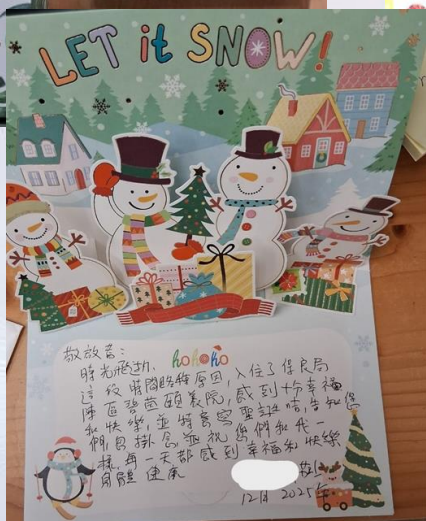 LET it SNOW!
敬啟者:
hohoho
時光飛逝,
這段時間 原因,入住了保良局
陳區碧茵頤養院,感到十分幸福
和快樂,並特意寫聖誕咭告知您
們,且掛念並祝您們和我一
樣,每一天都感到幸福和快樂
身體健康
敬上
12月 2025年